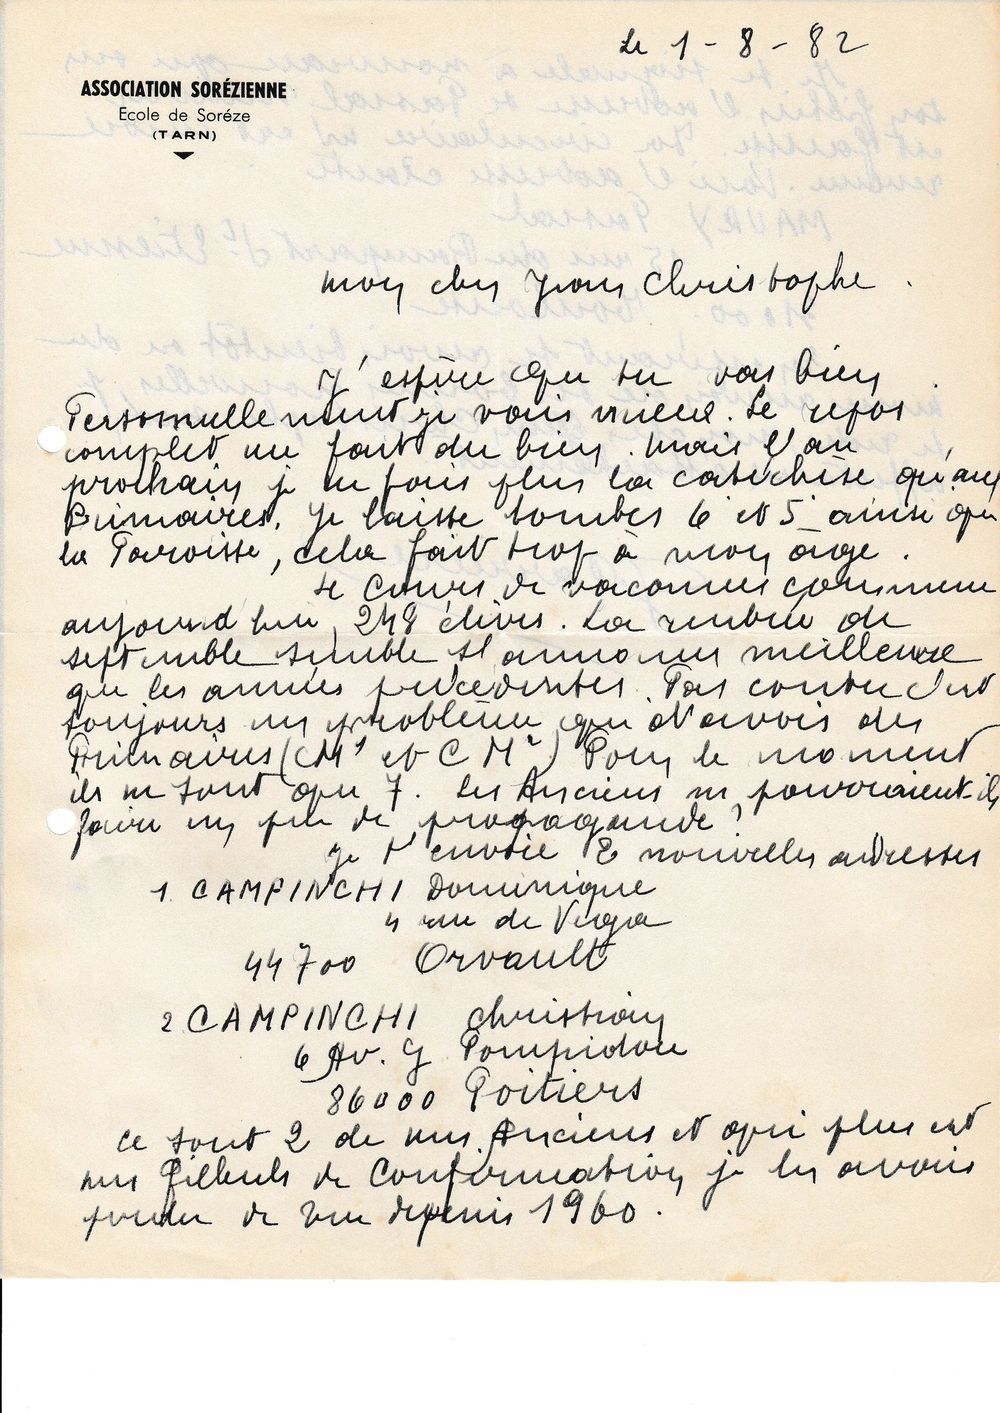 Le 1-8-82
ASSOCIATION SORÉZIENNE
Ecole de Soréze
(TARN)
Mon cher Jean Christophe.
J'espère que tu vas bien.
Personnellement je vais mieux. Le repos
complet me fait du bien. Mais l'an
prochain je ne fais plus la catéchèse qu'aux
Primaires. Je laisse tomber 6 et 5 ainsi que
la Paroisse, cela fait trop à mon âge.
Le Cours de vacances commence
aujourd'hui, 248 élèves. La rentrée de
septembre semble s'annoncer meilleure
que les années précédentes. Par contre c'est
toujours un problème que d'avoir des
Primaires (CM1 et CM2) Pour le moment
ils ne sont que 7. Les Anciens ne pourraient-ils
faire un peu de propagande ?
Je t'envoie 2 nouvelles adresses
1. CAMPINCHI Dominique
4 rue de Vega
44700 Orvault
2 CAMPINCHI Christian
6 Av. G Pompidou
86000 Poitiers
Ce sont 2 de mes Anciens et qui plus est
mes filleuls de Confirmation, je les avais
perdu de vue depuis 1960.